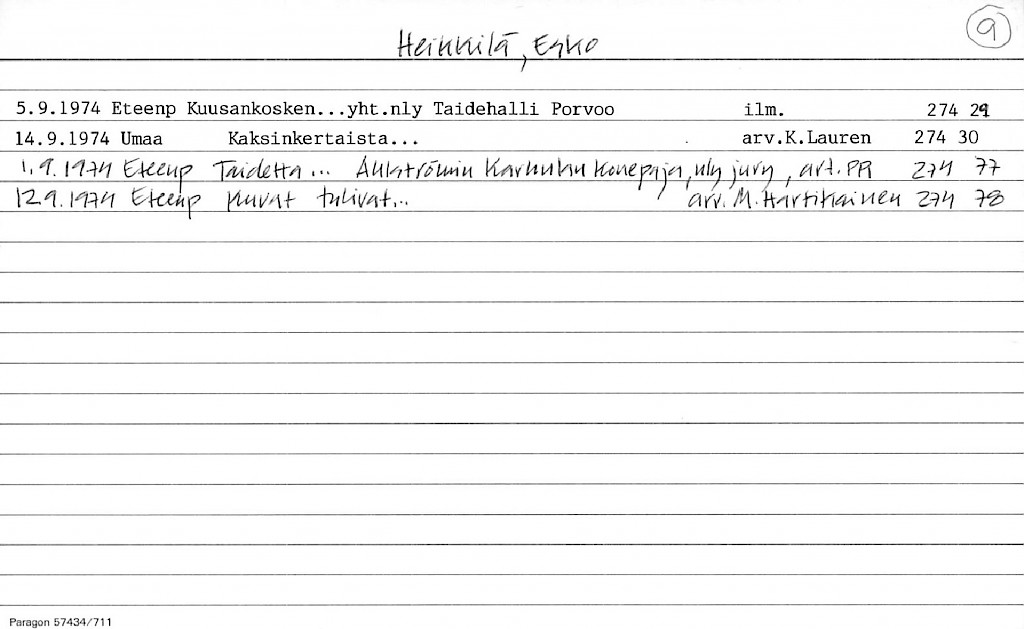 9
Heikkilä, Esko
5.9.1974 Eteenp Kuusankosken...yht.nly Taidehalli Porvoo ilm. 274 29
14.9.1974 Umaa Kaksinkertaista... arv.K.Lauren 274 30
1.9.1974 Eteenp Taidetta... Ahlströmin Karhulan konepaja, nly jury, art. PR 274 77
12.9.1974 Eteenp Kuvat tulivat... arv. M. Hartikainen 274 78
Paragon 57434/711